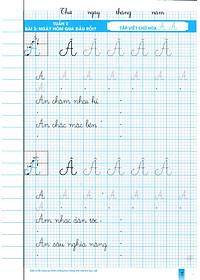 Thứ ngày tháng năm
TUẦN 2
BÀI 3: NGÀY HÔM QUA ĐÂU RỒI?
TẬP VIẾT CHỮ HOA: Ă, Â
Ă Ă Ă Ă Ă
Ă Ă Ă Ă Ă Ă Ă
Ăn chậm nhai kĩ
Ăn chắc mặc bền
Â Â Â Â Â
Â Â Â Â Â Â Â
Âm nhạc dân tộc
Ân sâu nghĩa nặng